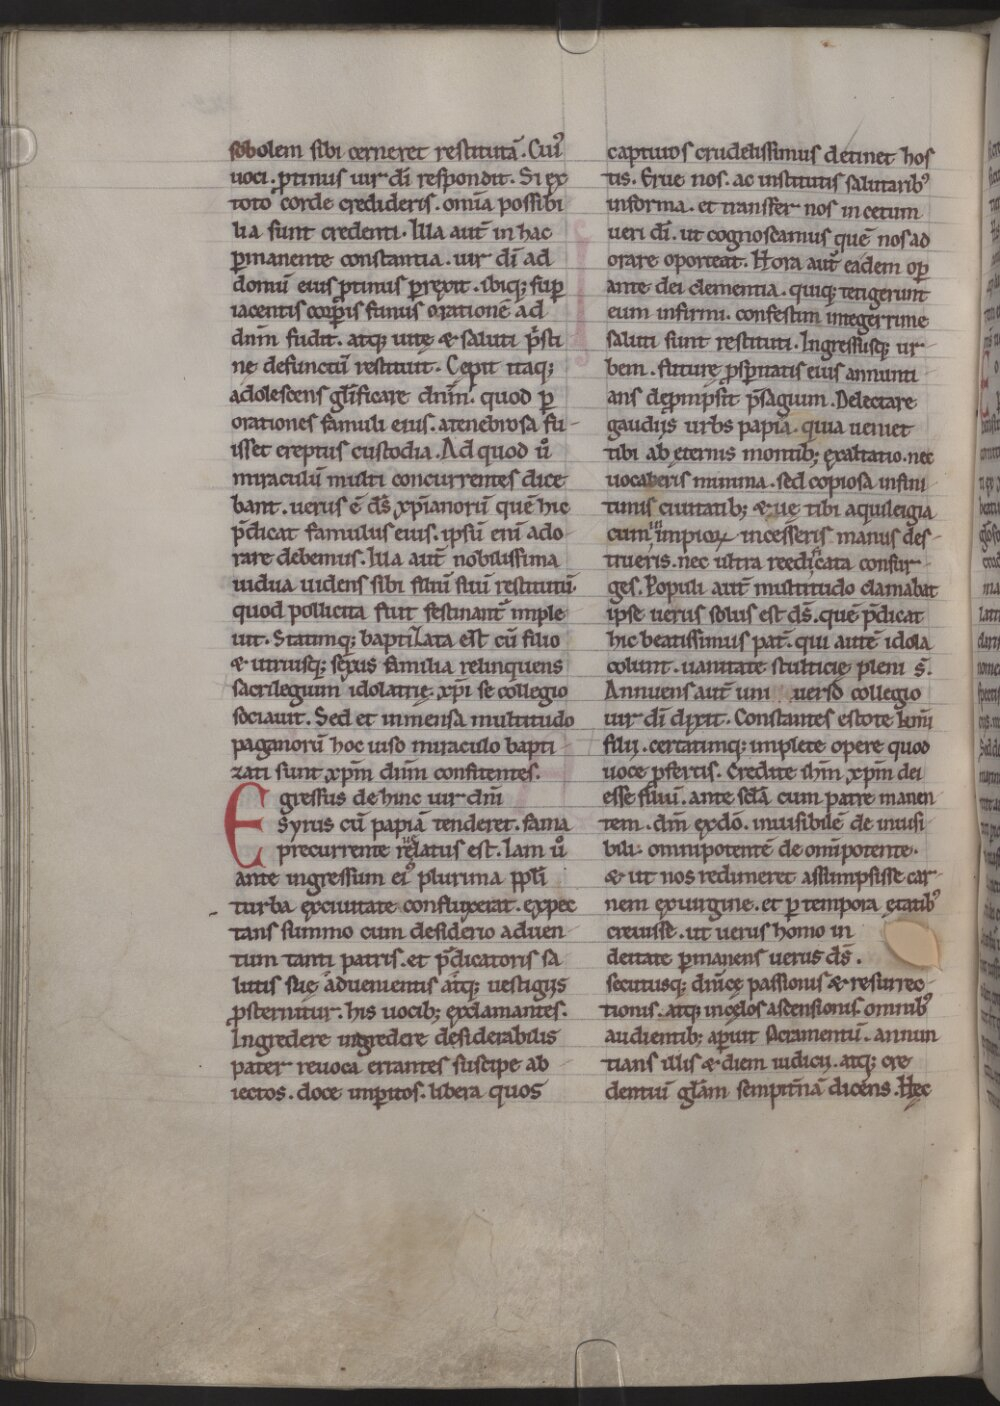 sobolem sibi cerneret restitutā. Cuiꝰ
uoci. ꝓtinus uir dī respondit. Si ex
toto corde credideris. om̄ia possibi
lia sunt credenti. Illa aut̄ in hac
ꝑmanente constantia. uir dī ad
domū eius ꝓtinus ꝑrexit. ibiq; suꝑ
iacentis corꝑis funus orationē ad
dn̄m fudit. atq; uitę & saluti p̄sti
ne defunctū restituit. Cepit itaq;
adolescens gl̄ificare dn̄m. quod ꝑ
orationes famuli eius. atenebrosa fu-
isset ereptus custodia. Ad quod ū
miraculū multi concurrentes dice
bant. uerus ē d̄s xp̄ianorū quē hic
p̄dicat famulus eius. ipsū eni ado-
rare debemus. Illa aut̄ nobilissima
uidua uidens sibi filiū suū restitutū.
quod pollicita fuit festinant̄ imple
uit. Statimq; baptizata est cū filio
& utriusq; sexus familia relinquens
sacrilegium idolatrię. xp̄i se collegio
sociauit. Sed et inmensa multitudo
paganorū hoc uiso miraculo bapti-
zati sunt xp̄m dn̄m confitentes.
Egressus dehinc uir dn̄i
Syrus cū papiā tenderet. fama
precurrente reuelatus est. Iam ū
ante ingressum eiꝰ plurima ppl̄i
turba exciuitate confluxerat. expec
tans summo cum desiderio aduen
tum tanti patris. et p̄dicatoris sa
lutis suę aduenientis atq; uestigiis
ꝓsternitur. his uocib; exclamantes.
Ingredere ingredere desiderabilis
pater reuoca errantes suscipe ab
iectos. doce imꝑitos. libera quos
captiuos crudelissimus detinet hos
tis. Erue nos. ac institutis salutaribꝰ
informa. et transfer nos in cetum
ueri dī. ut cognoscamus quē nos ad
orare oporteat. Hora aut̄ eadem oꝑ
ante dei clementia. quiq; tetigerunt
eum infirmi. confestim integerrime
saluti sunt restituti. Ingressusq; ur-
bem. futurę ꝓsꝑitatis eius annunti
ans deprompsit p̄sagium. Delectare
gaudiis urbs papia. quia ueniet
tibi ab eternis montib; exaltatio. nec
uocaberis minima. sed copiosa infini
timis ciuitatib; & uę tibi aquileigia
cum impioꝝ incesseris manus des-
trueris. nec ultra reedificata consur-
ges. Populi aut̄ multitudo clamabat
ipse uerus solus est d̄s. quē p̄dicat
hic beatissimus pat̄. qui autē idola
colunt. uanitate stulticię pleni s̄.
Annuens aut̄ uni uerso collegio
uir dī dixit. Constantes estote
filii. certatimq; implete opere quod
uoce ꝓfertis. Credite ih̄m xp̄m dei
esse filiū. ante sc̄la cum patre manen
tem. dm̄ exdo. inuisibilē de inuisi
bili. omnipotentē de om̄ipotente.
& ut nos redimeret assumpsisse car-
nem exuirgine. et ꝑ tempora etatibꝰ
creuisse. ut uerus homo in
deitate ꝑmanens uerus d̄s.
secutusq; dn̄icę passionis & resurrec-
tionis. atq; incęlos ascensionis omnibꝰ
audientib; aꝑuit sacramentū. annun
tians illis & diem iudicii. atq; cre
dentiū gl̄am sempit̄nā dicens. Hęc